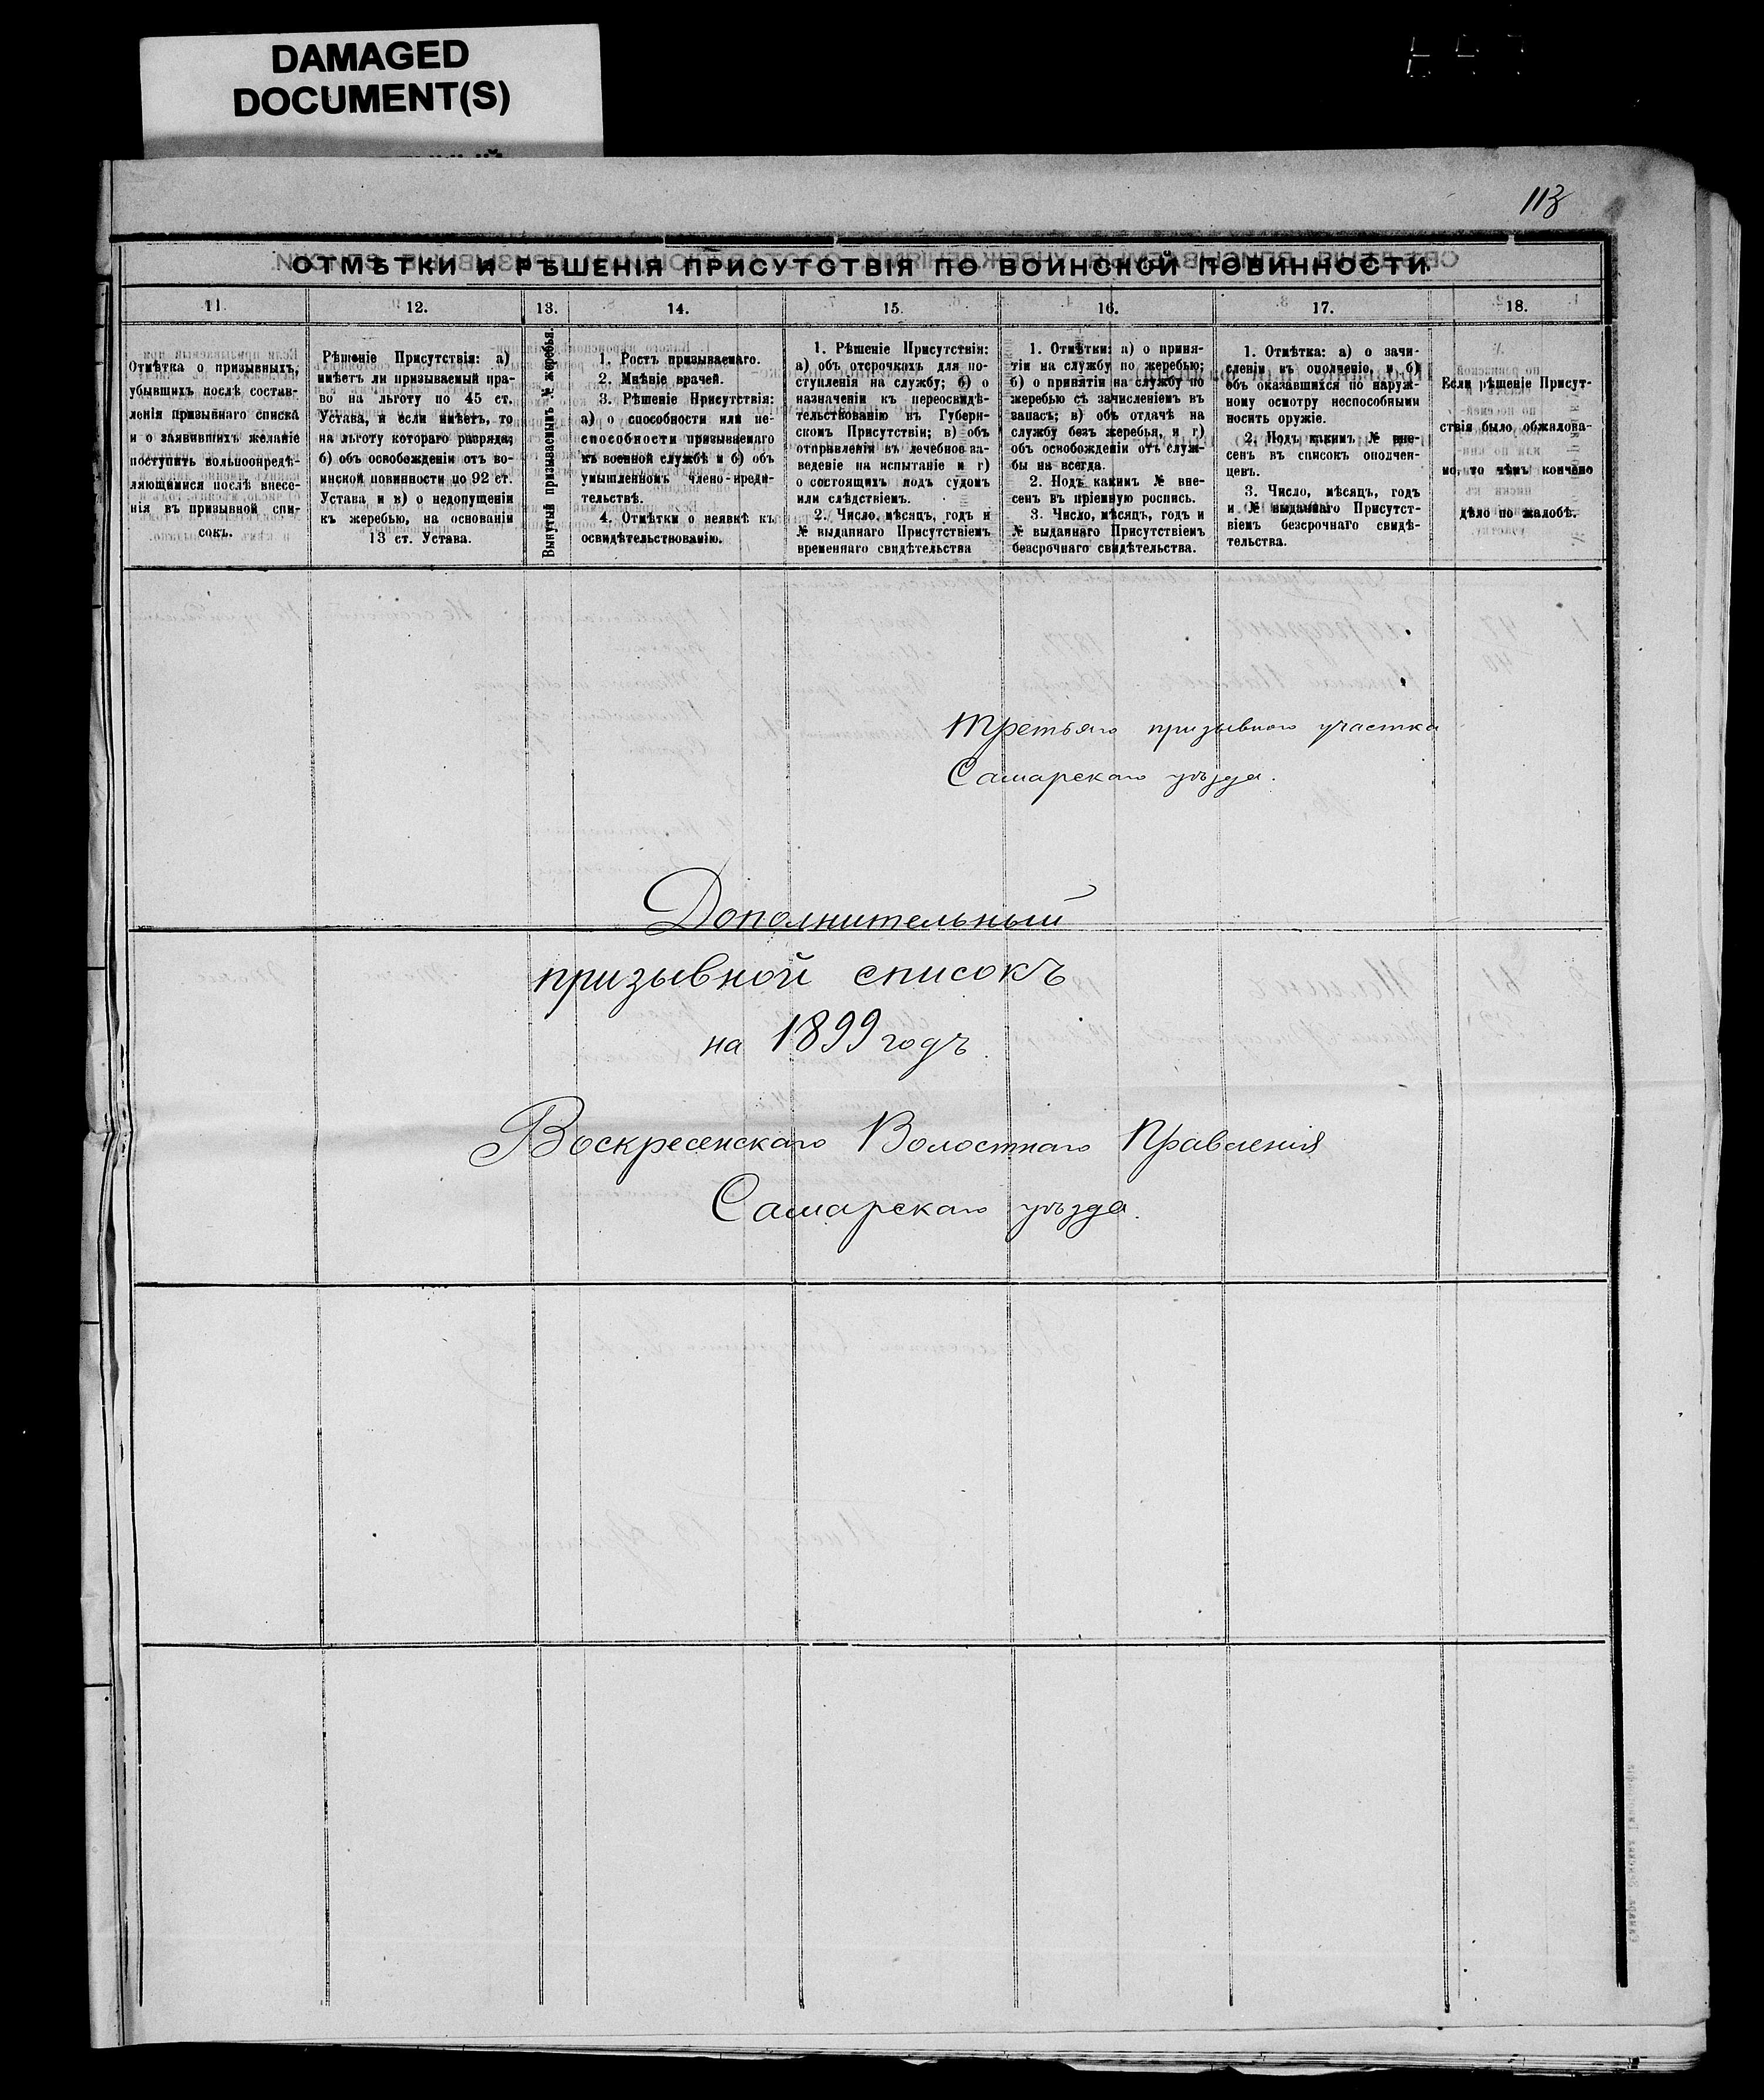 DAMAGED
DOCUMENT(S)
113
ОТМѢТКИ И РѢШЕНІЯ ПРИСУТСТВІЯ ПО ВОИНСКОЙ ПОВИННОСТИ.
11.
12.
13.
14.
15.
16.
17.
18.
Отмѣтка о призывныхъ,
убывшихъ послѣ состав-
ленія призывнаго списка
и о заявившихъ желаніе
поступить вольноопредѣ-
ляющимися послѣ внесе-
нія въ призывной спи-
сокъ.
Рѣшеніе Присутствія: а)
имѣетъ ли призываемый пра-
во на льготу по 45 ст.
Устава, и если имѣетъ, то
на льготу котораго разряда;
б) объ освобожденіи отъ во-
инской повинности по 92 ст.
Устава и в) о недопущеніи
къ жеребью, на основаніи
13 ст. Устава.
Вынутый призываемымъ № жеребья.
1. Ростъ призываемаго.
2. Мнѣніе врачей.
3. Рѣшеніе Присутствія:
а) о способности или не-
способности призываемаго
къ военной службѣ и б) объ
умышленномъ члено-вреди-
тельствѣ.
4. Отмѣтки о неявкѣ къ
освидѣтельствованію.
1. Рѣшеніе Присутствія:
а) объ отсрочкахъ для по-
ступленія на службу; б) о
назначеніи къ переосвидѣ-
тельствованію въ Губерн-
скомъ Присутствіи; в) объ
отправленіи въ лечебное за-
веденіе на испытаніе и г)
о состоящихъ подъ судомъ
или слѣдствіемъ.
2. Число, мѣсяцъ, годъ и
№ выданнаго Присутствіемъ
временнаго свидѣтельства
1. Отмѣтки: а) о приня-
тіи на службу по жеребью;
б) о принятіи на службу по
жеребью съ зачисленіемъ въ
запасъ; в) объ отдачѣ на
службу безъ жеребья, и г)
объ освобожденіи отъ служ-
бы на всегда.
2. Подъ какимъ № вне-
сенъ въ пріемную роспись.
3. Число, мѣсяцъ, годъ и
№ выданнаго Присутствіемъ
безсрочнаго свидѣтельства.
1. Отмѣтка: а) о зачи-
сленіи въ ополченіе, и б)
объ оказавшихся по наруж-
ному осмотру неспособными
носить оружіе.
2. Подъ какимъ № вне-
сенъ въ списокъ ополчен-
цевъ.
3. Число, мѣсяцъ, годъ
и № выданнаго Присутст-
віемъ безсрочнаго свидѣ-
тельства.
Если рѣшеніе Присут-
ствія было обжалова-
но, то чѣмъ кончено
дѣло по жалобѣ.
Третьяго призывного участка
Самарскаго уѣзда.
Дополнительный
призывной списокъ
на 1899 годъ
Воскресенскаго Волостнаго Правленія
Самарскаго уѣзда.